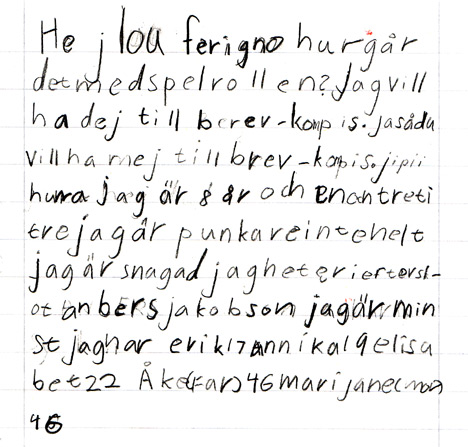 He j lou ferigno hurgår
detmedspelrollen? Jagvill
hadej till brev-komp is. jasådu
villhamej till brev-kopis. jipii
hurra jag är 8 år och Enantreti
tre jagär punkareintehelt
jagärsnagad jagheteriefterst-
ot anbers jakobson jagärmin
st jaghar erik17annika19elisa
bet22 Åke(Far)46marijane(mor)
46